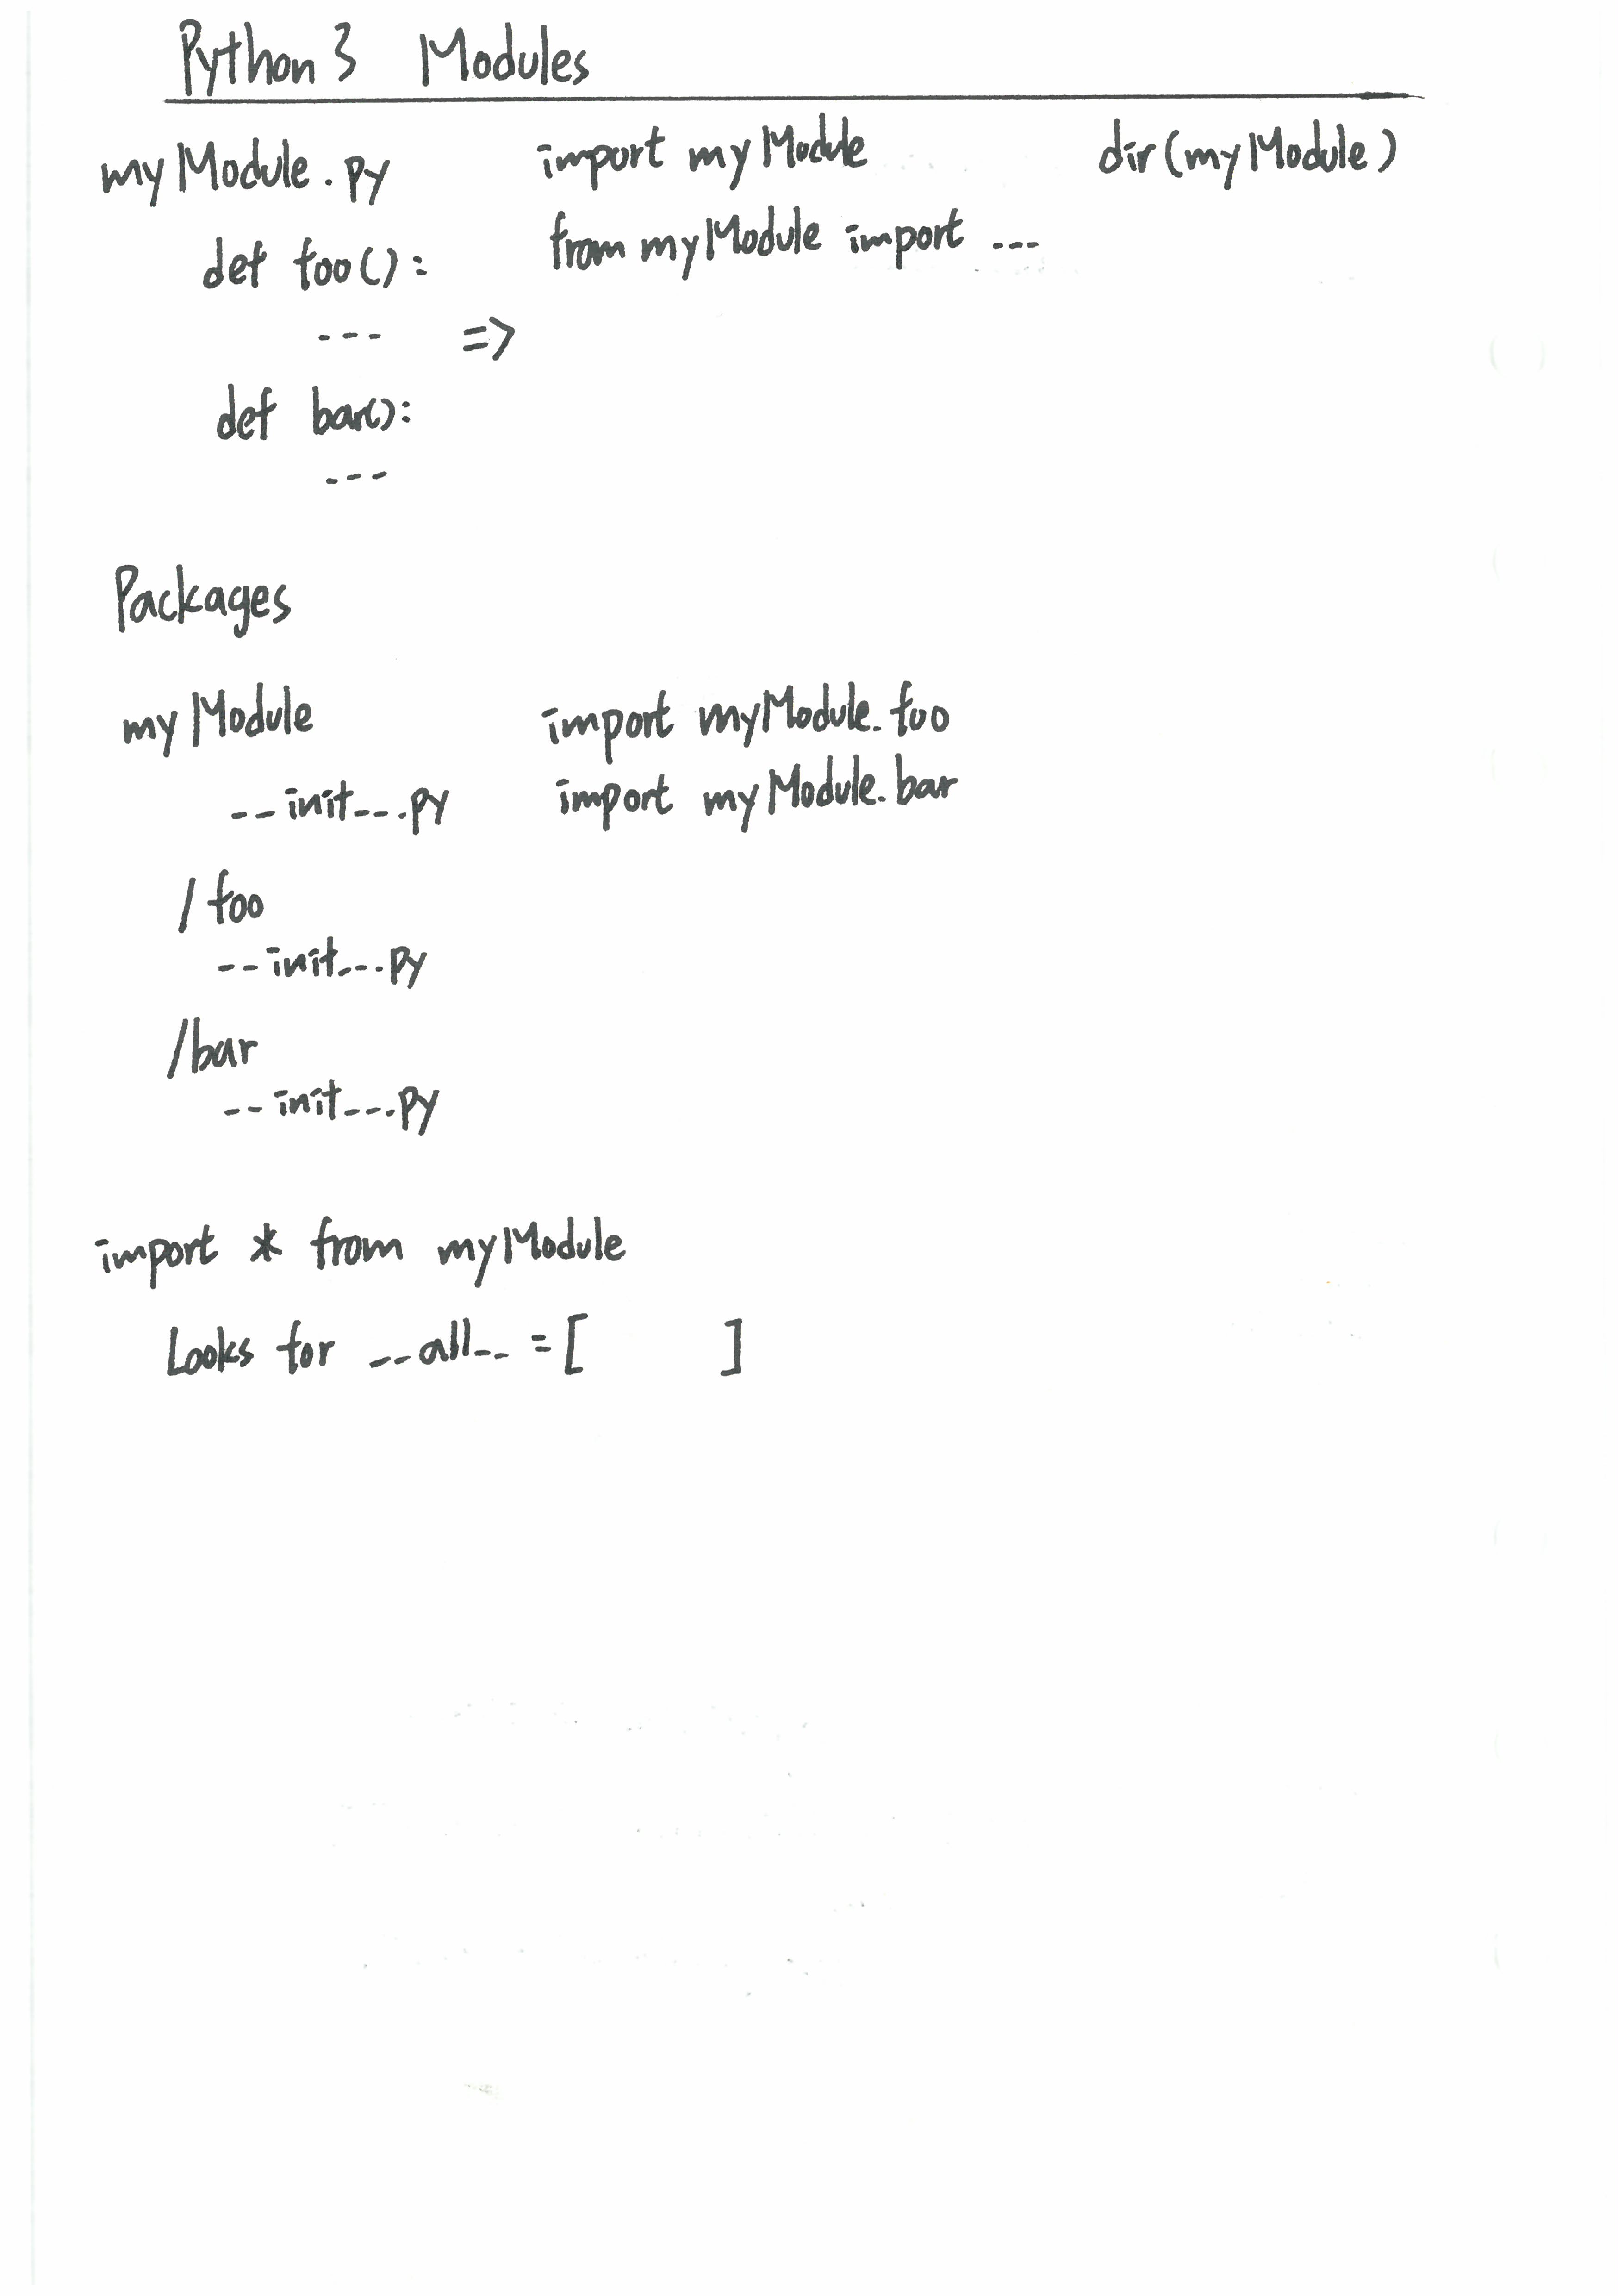 Python 3 Modules
myModule.py
def foo():
---
=>
def bar():
---
import myModule
from myModule import ---
dir(myModule)
Packages
myModule
__init__.py
/foo
__init__.py
/bar
__init__.py
import myModule.foo
import myModule.bar
import * from myModule
Looks for __all__ = [ ]